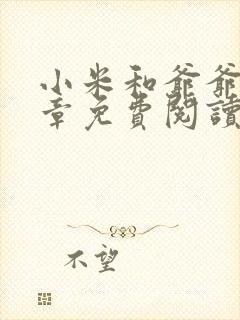 小米和爺爺
章免費閱讀
不望